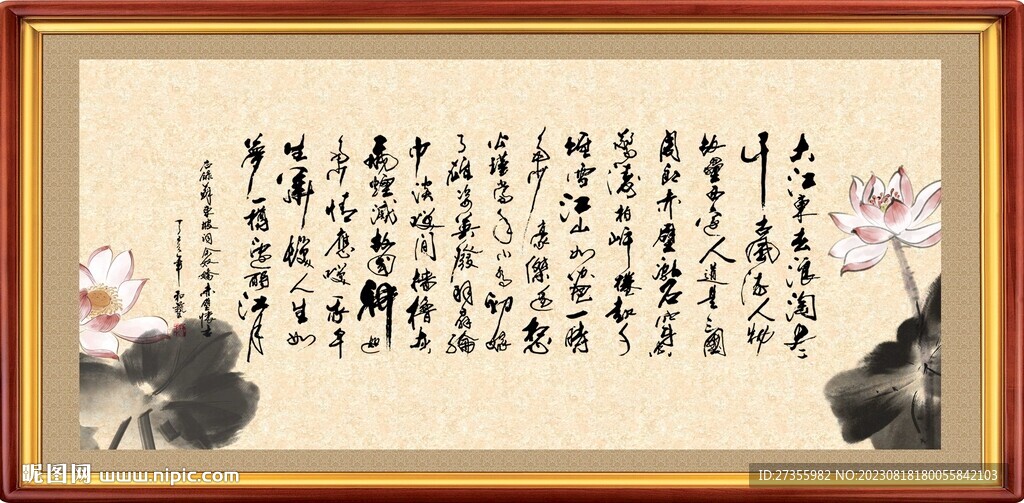 大江東去浪淘盡
千古風流人物
故壘西邊人道是三國
周郎赤壁亂石穿空
驚濤拍岸捲起千
堆雪江山如畫一時
多少豪傑遥想
公瑾當年小喬初嫁
了雄姿英發羽扇綸
巾談笑間檣櫓灰
飛煙滅故國神遊
多情應笑我早
生華髮人生如
夢一樽還酹江月
蘇東坡詞念奴嬌赤壁懷古
丁亥年
昵图网 www.nipic.com
ID:27355982 NO:20230818180055842103